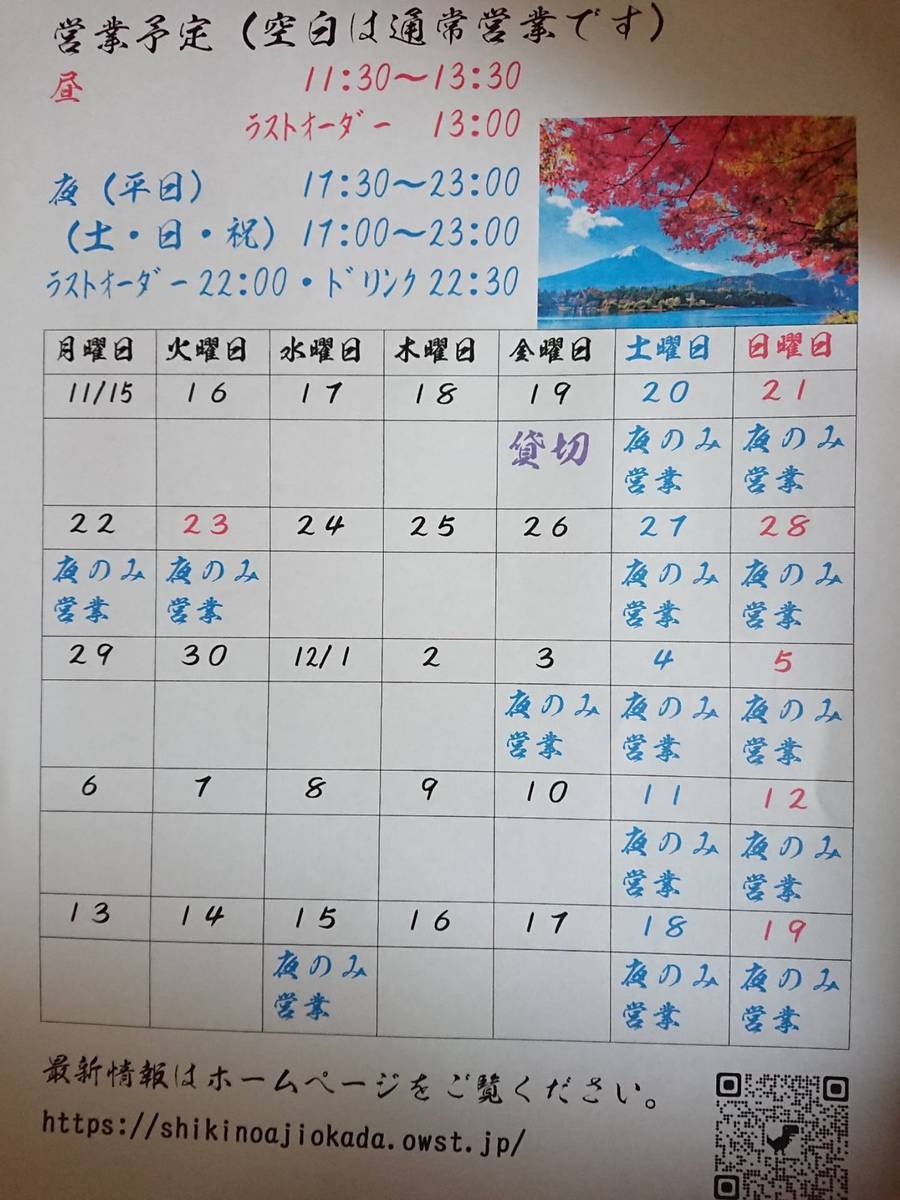 営業予定（空白は通常営業です）
昼 11:30～13:30
ラストオーダー 13:00
夜（平日） 17:30～23:00
（土・日・祝）17:00～23:00
ラストオーダー22:00・ドリンク22:30
月曜日 火曜日 水曜日 木曜日 金曜日 土曜日 日曜日
11/15 16 17 18 19 20 21
貸切 夜のみ 夜のみ
営業 営業
22 23 24 25 26 27 28
夜のみ 夜のみ 夜のみ 夜のみ
営業 営業 営業 営業
29 30 12/1 2 3 4 5
夜のみ 夜のみ 夜のみ
営業 営業 営業
6 7 8 9 10 11 12
夜のみ 夜のみ
営業 営業
13 14 15 16 17 18 19
夜のみ 夜のみ 夜のみ
営業 営業 営業
最新情報はホームページをご覧ください。
https://shikinoajiokada.owst.jp/